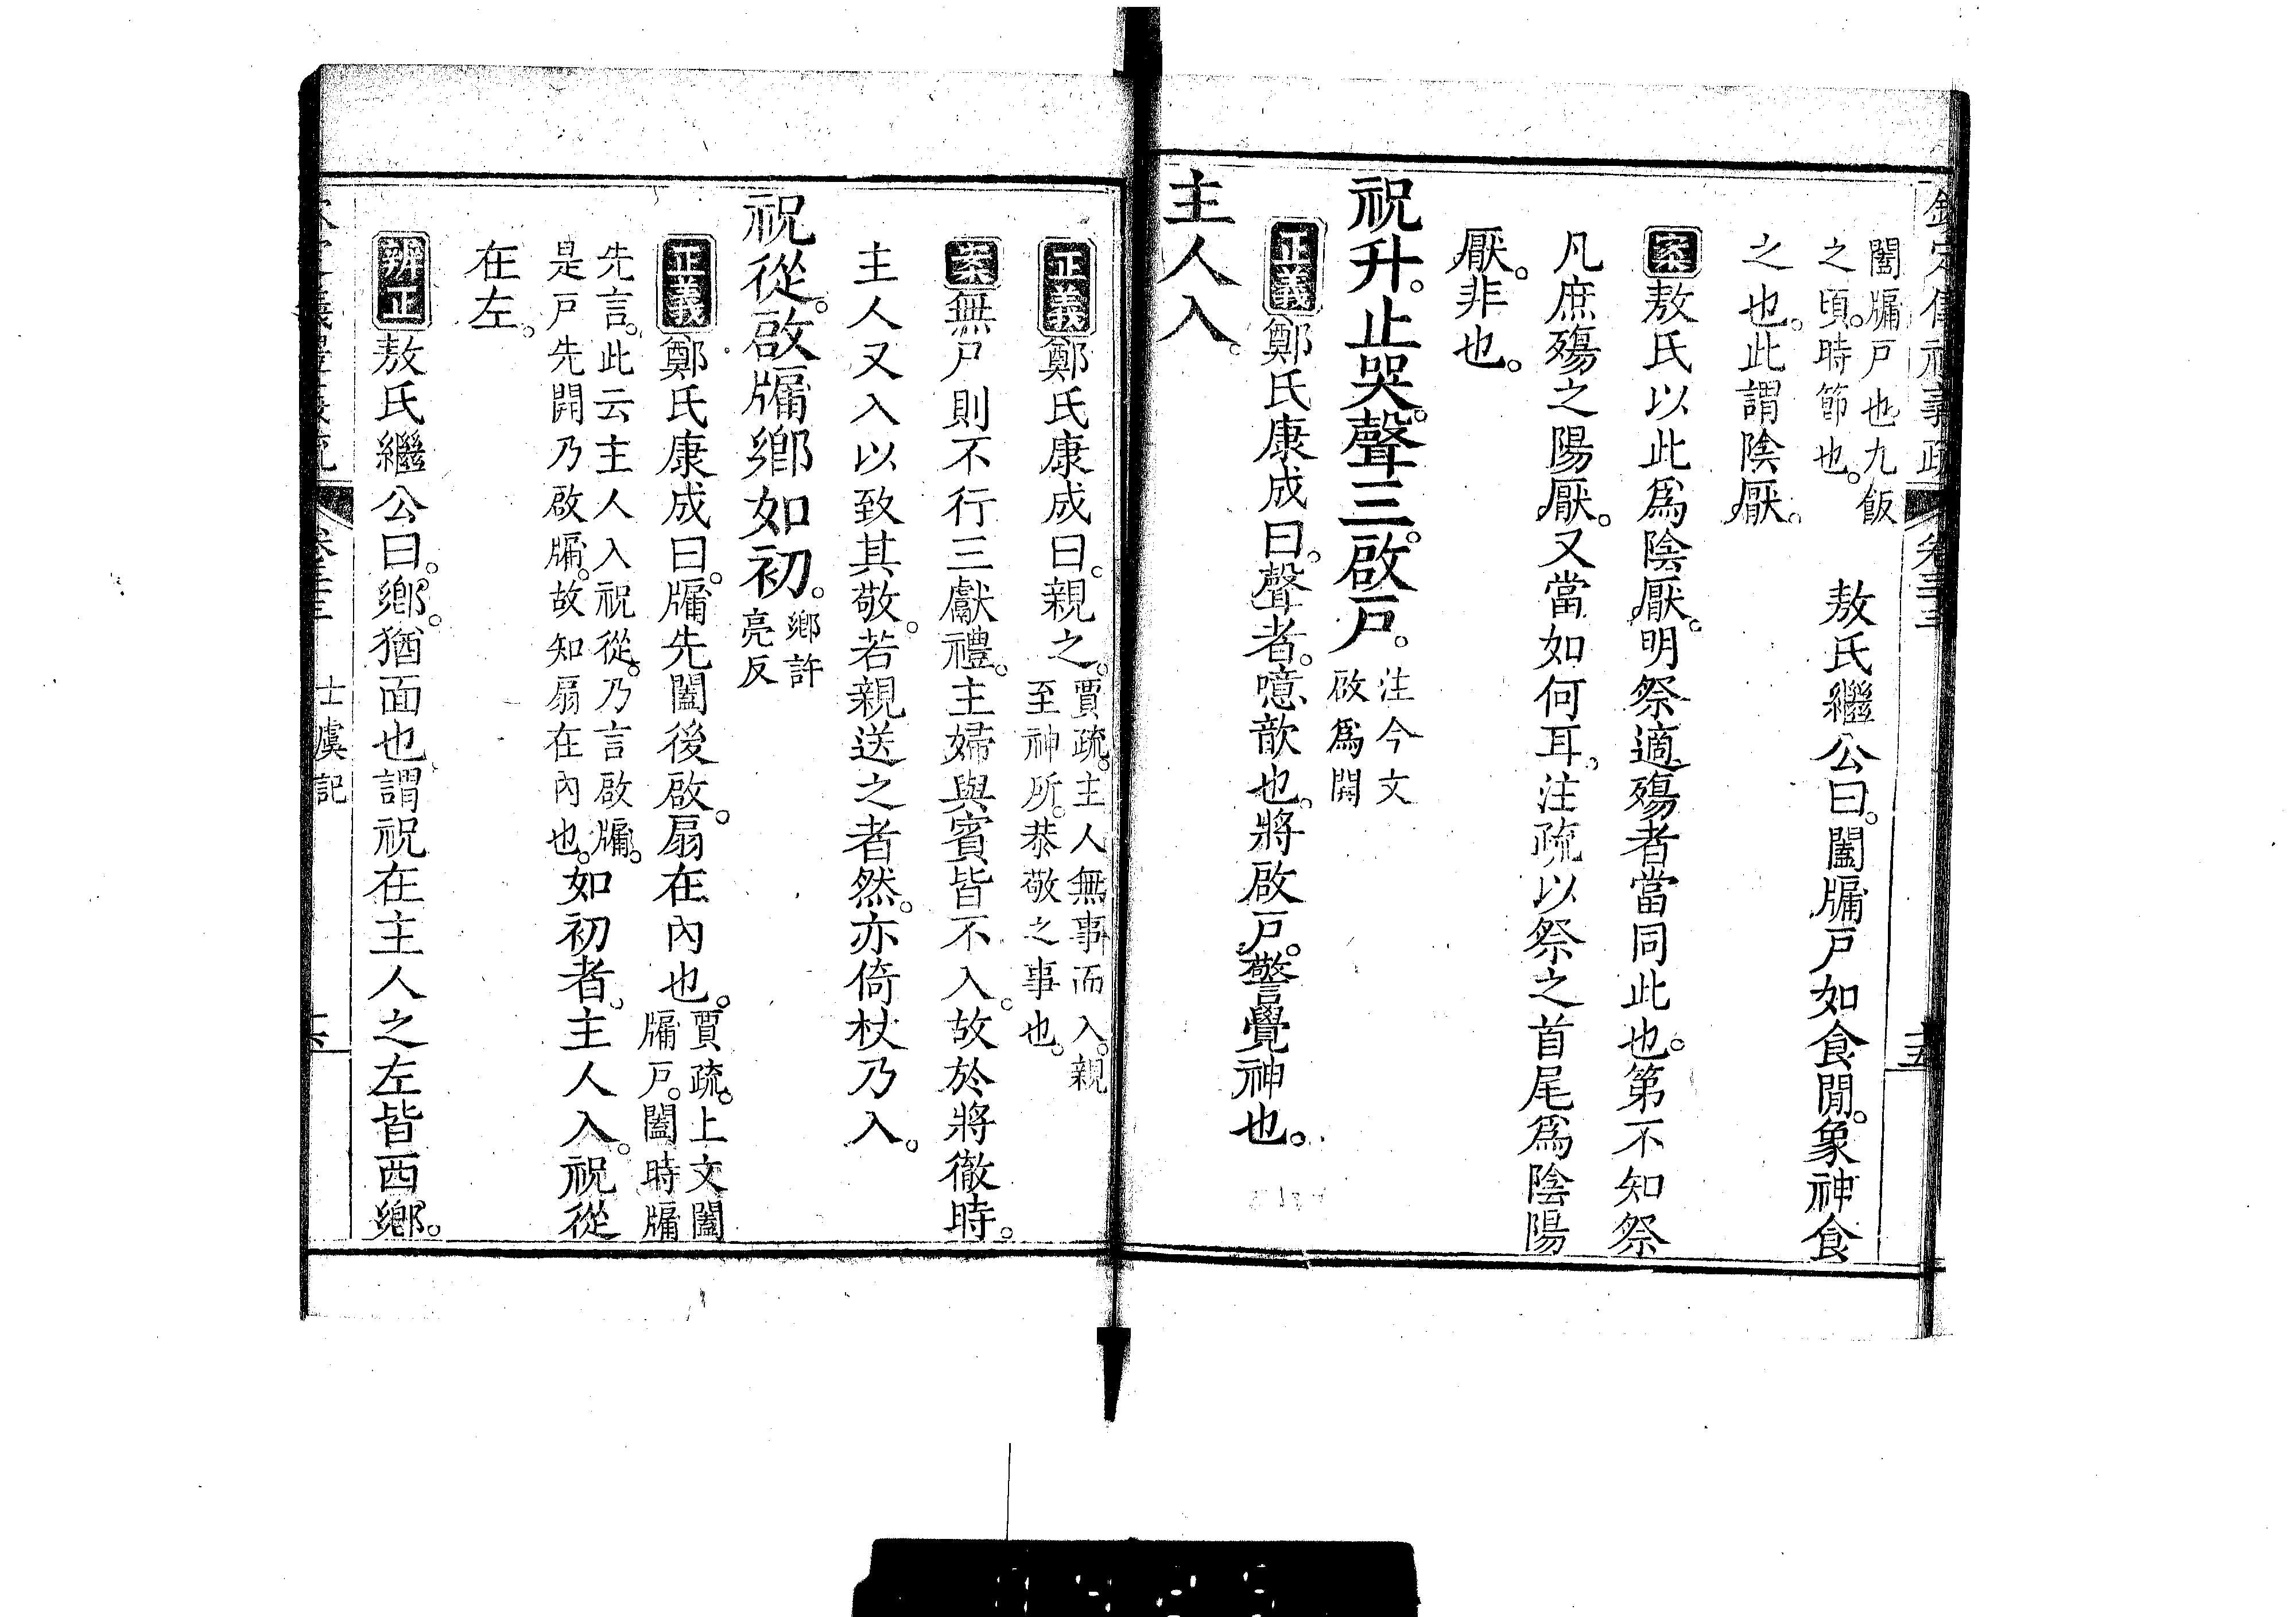 欽定儀禮義疏 卷三十三 十五
闔牖戶也九飯
之頃。時節也。
敖氏繼公曰。闔牖戶如食閒。象神食
之也。此謂陰厭。
案敖氏以此爲陰厭。明祭適殤者當同此也。第不知祭
凡庶殤之陽厭。又當如何耳。注疏以祭之首尾爲陰陽
厭。非也。
祝升。止哭。聲三。啟戶。
注今文
啟爲開
正義鄭氏康成曰。聲者。噫歆也。將啟戶。警覺神也。
主人入。
正義鄭氏康成曰。親之。
賈疏。主人無事而入。親
至神所。恭敬之事也。
案無尸則不行三獻禮。主婦與賓皆不入。故於將徹時。
主人又入以致其敬。若親送之者然。亦倚杖乃入。
祝從。啟牖鄉如初。
鄉許
亮反
正義鄭氏康成曰。牖先闔後啟。扇在內也。
賈疏。上文闔
牖戶。闔時牖
先言。此云主人入祝從。乃言啟牖。
是戶先開乃啟牖。故知扇在內也。
如初者。主人入。祝從
在左。
辨正敖氏繼公曰。鄉。猶面也。謂祝在主人之左皆西鄉。
卷三十三 士虞記